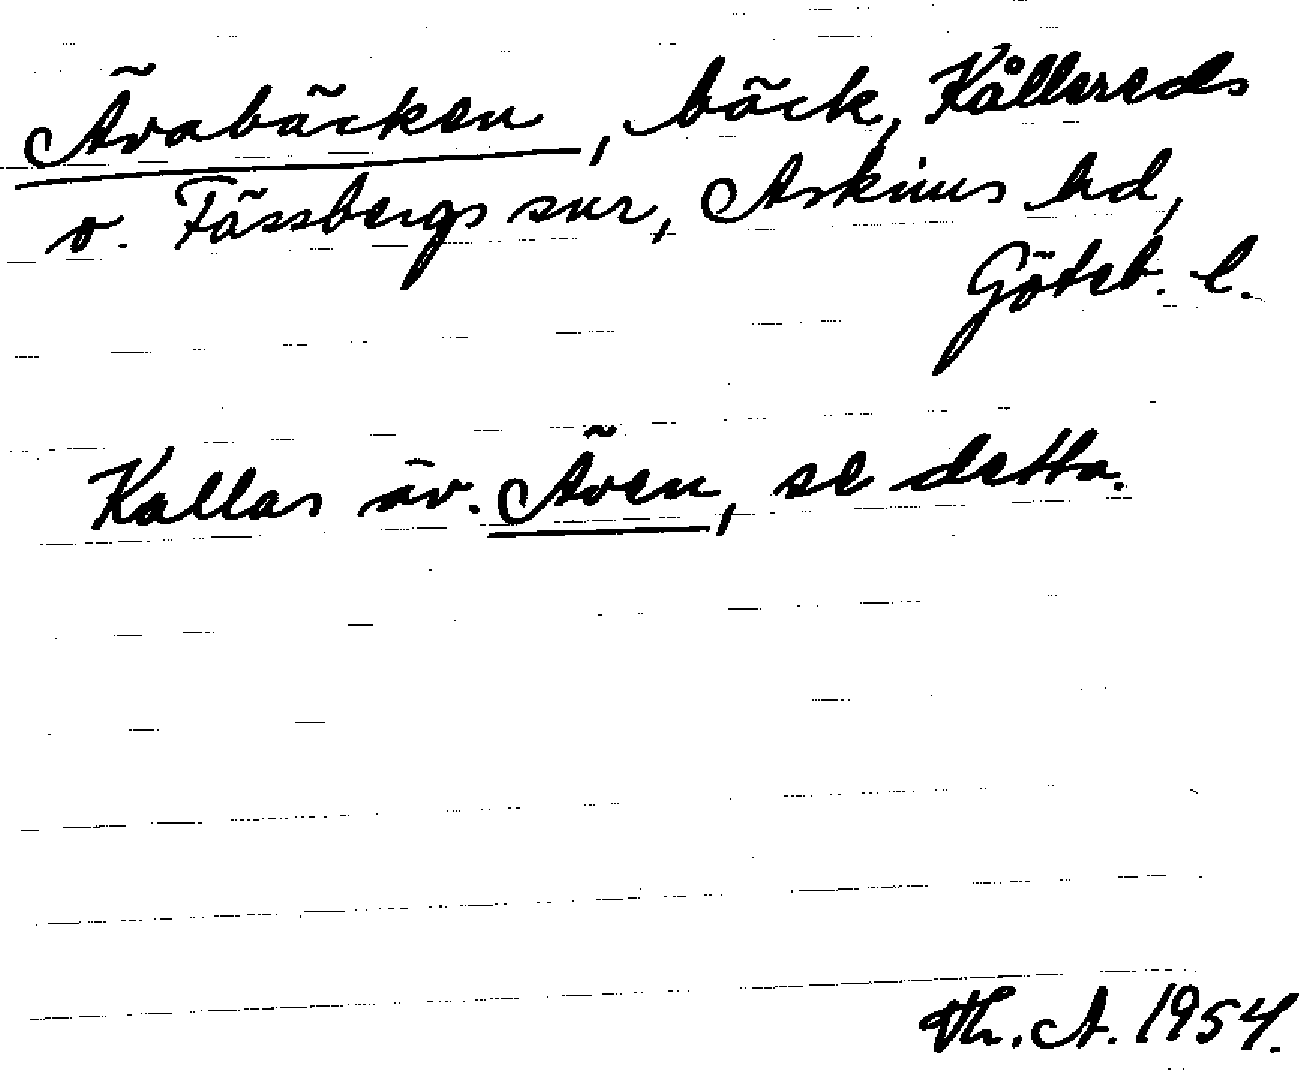 Ävabäcken, bäck, Kållereds
o. Fässbergs snr, Askims hd,
Göteb. l.
Kallas äv. Även, se detta.
Th. A. 1954.